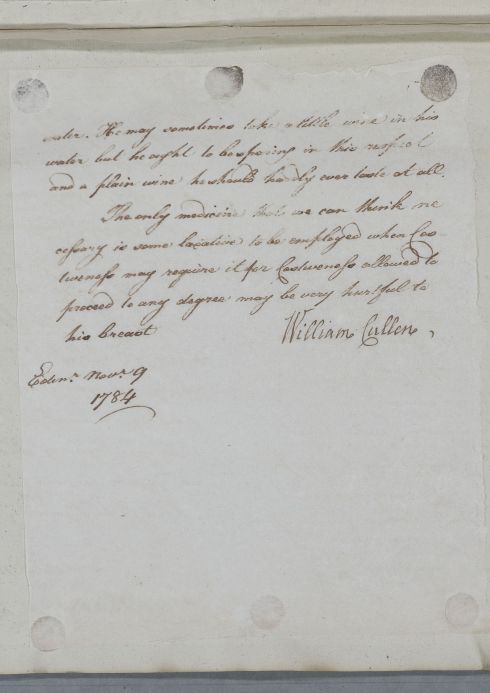 water. He may sometimes take a little wine in his
water but he ought to be sparing in this respect
and a plain wine he should hardly ever taste at all.
The only medicine that we can think ne
cessary is some laxative to be employed when Cos
tiveness may require it for Costiveness allowed to
proceed to any degree may be very hurtful to
his breast
William Cullen,
Edinr. Novr. 9
1784